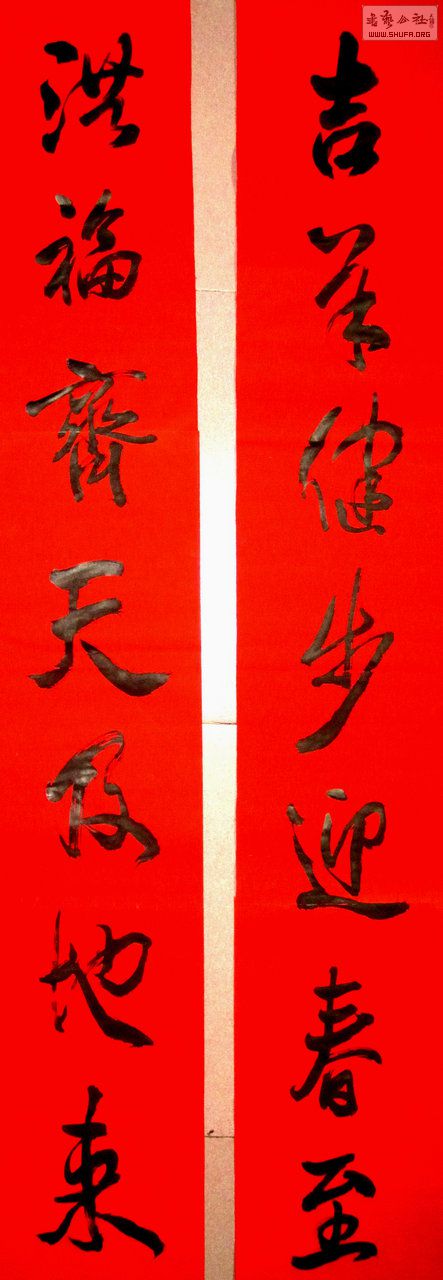 吉羊健步迎春至
洪福齊天及地来
書藝公社
WWW.SHUFA.ORG